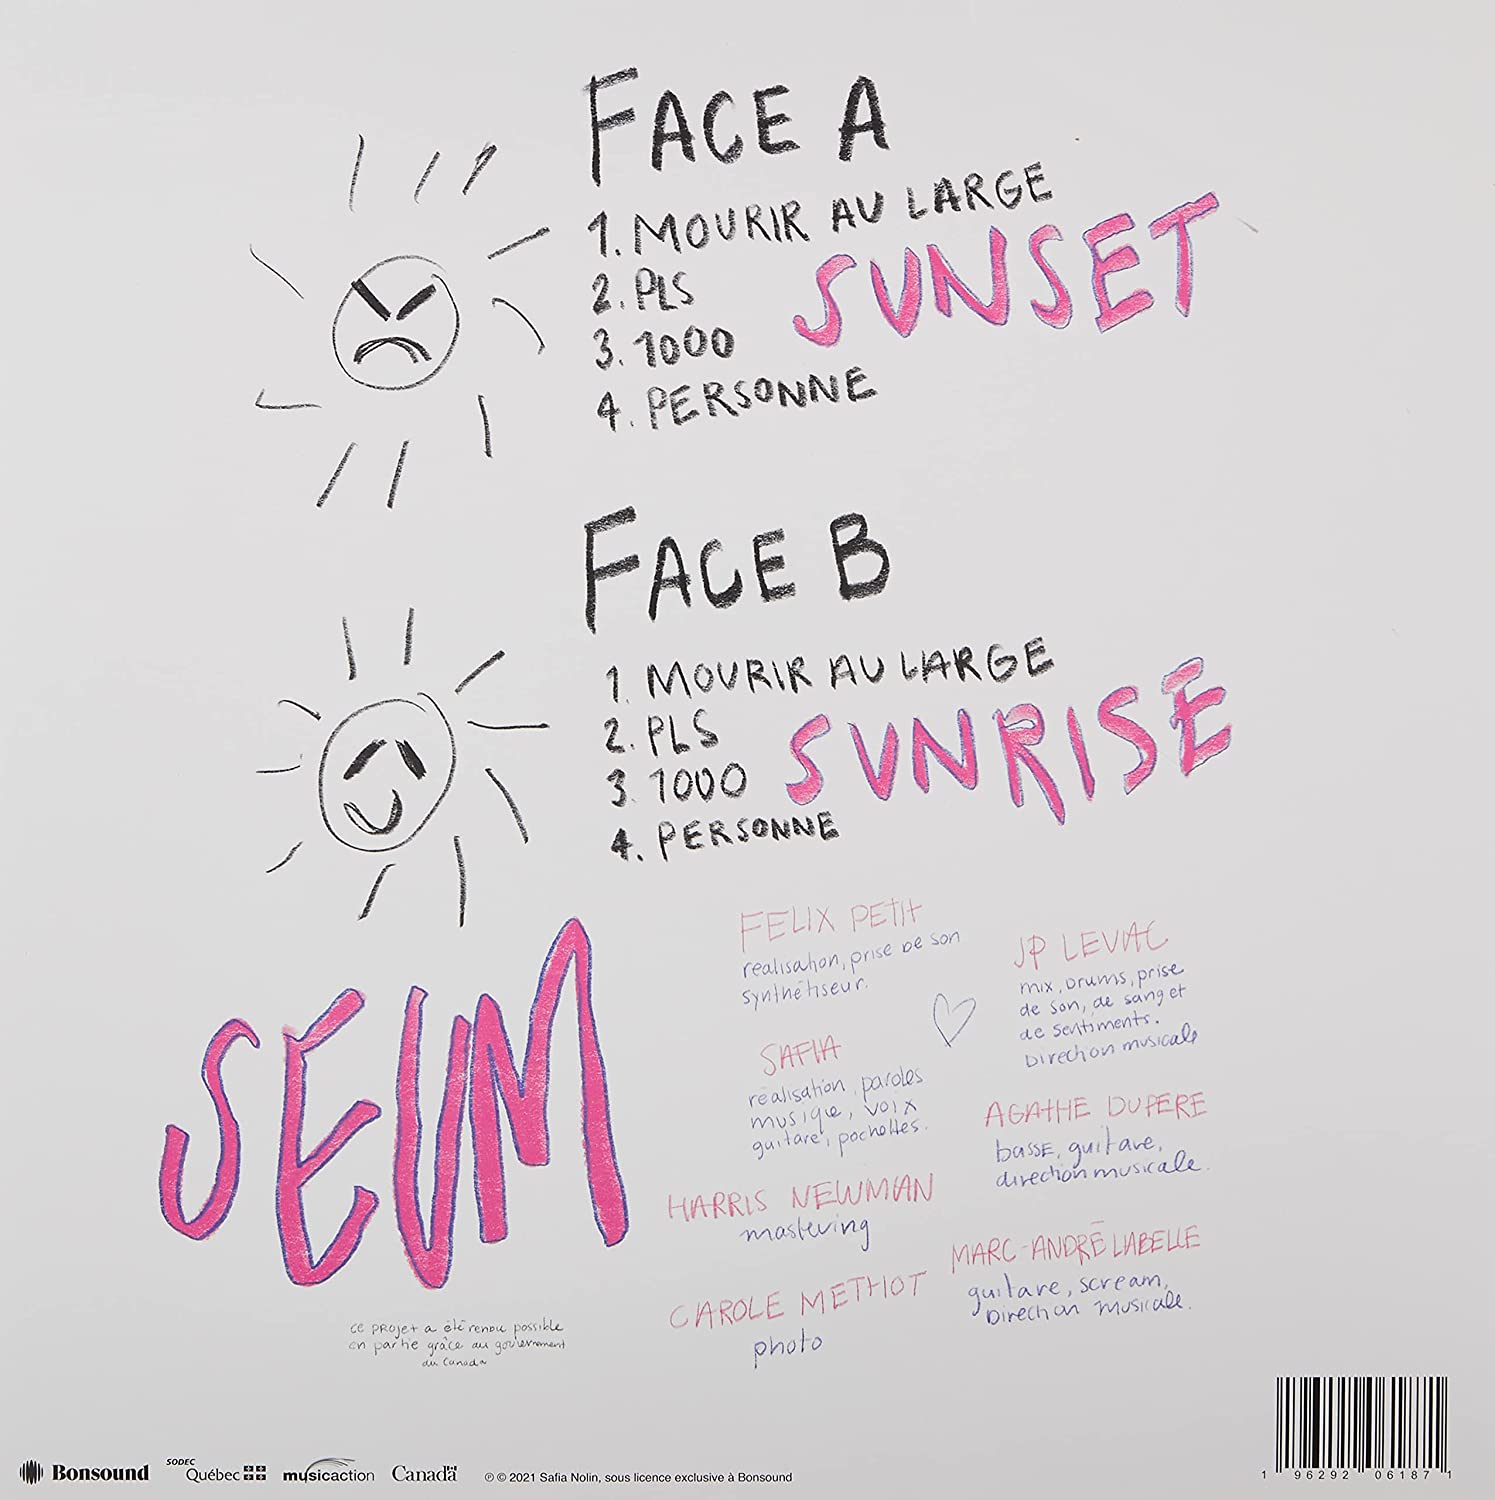 FACE A
1. MOURIR AU LARGE
2. PLS
3. 1000
4. PERSONNE
SUNSET
FACE B
1. MOURIR AU LARGE
2. PLS
3. 1000
4. PERSONNE
SUNRISE
SEUM
FELIX PETIT
realisation, prise de son
synthétiseur.
JP LEVIAC
mix, drums, prise
de son, de sang et
de sentiments.
Direction musicale
SAFIA
réalisation, paroles
musique, voix
guitare, pochettes.
AGATHE DUPERE
basse, guitare,
direction musicale.
HARRIS NEWMAN
mastering
MARC-ANDRÉ LABELLE
guitare, scream,
Direction musicale.
CAROLE METHOT
photo
ce projet a été rendu possible
en partie grâce au gouvernement
du Canada
Bonsound
SODEC
Québec
musicaction
Canada
℗ © 2021 Safia Nolin, sous licence exclusive à Bonsound
1 96292 06187 1